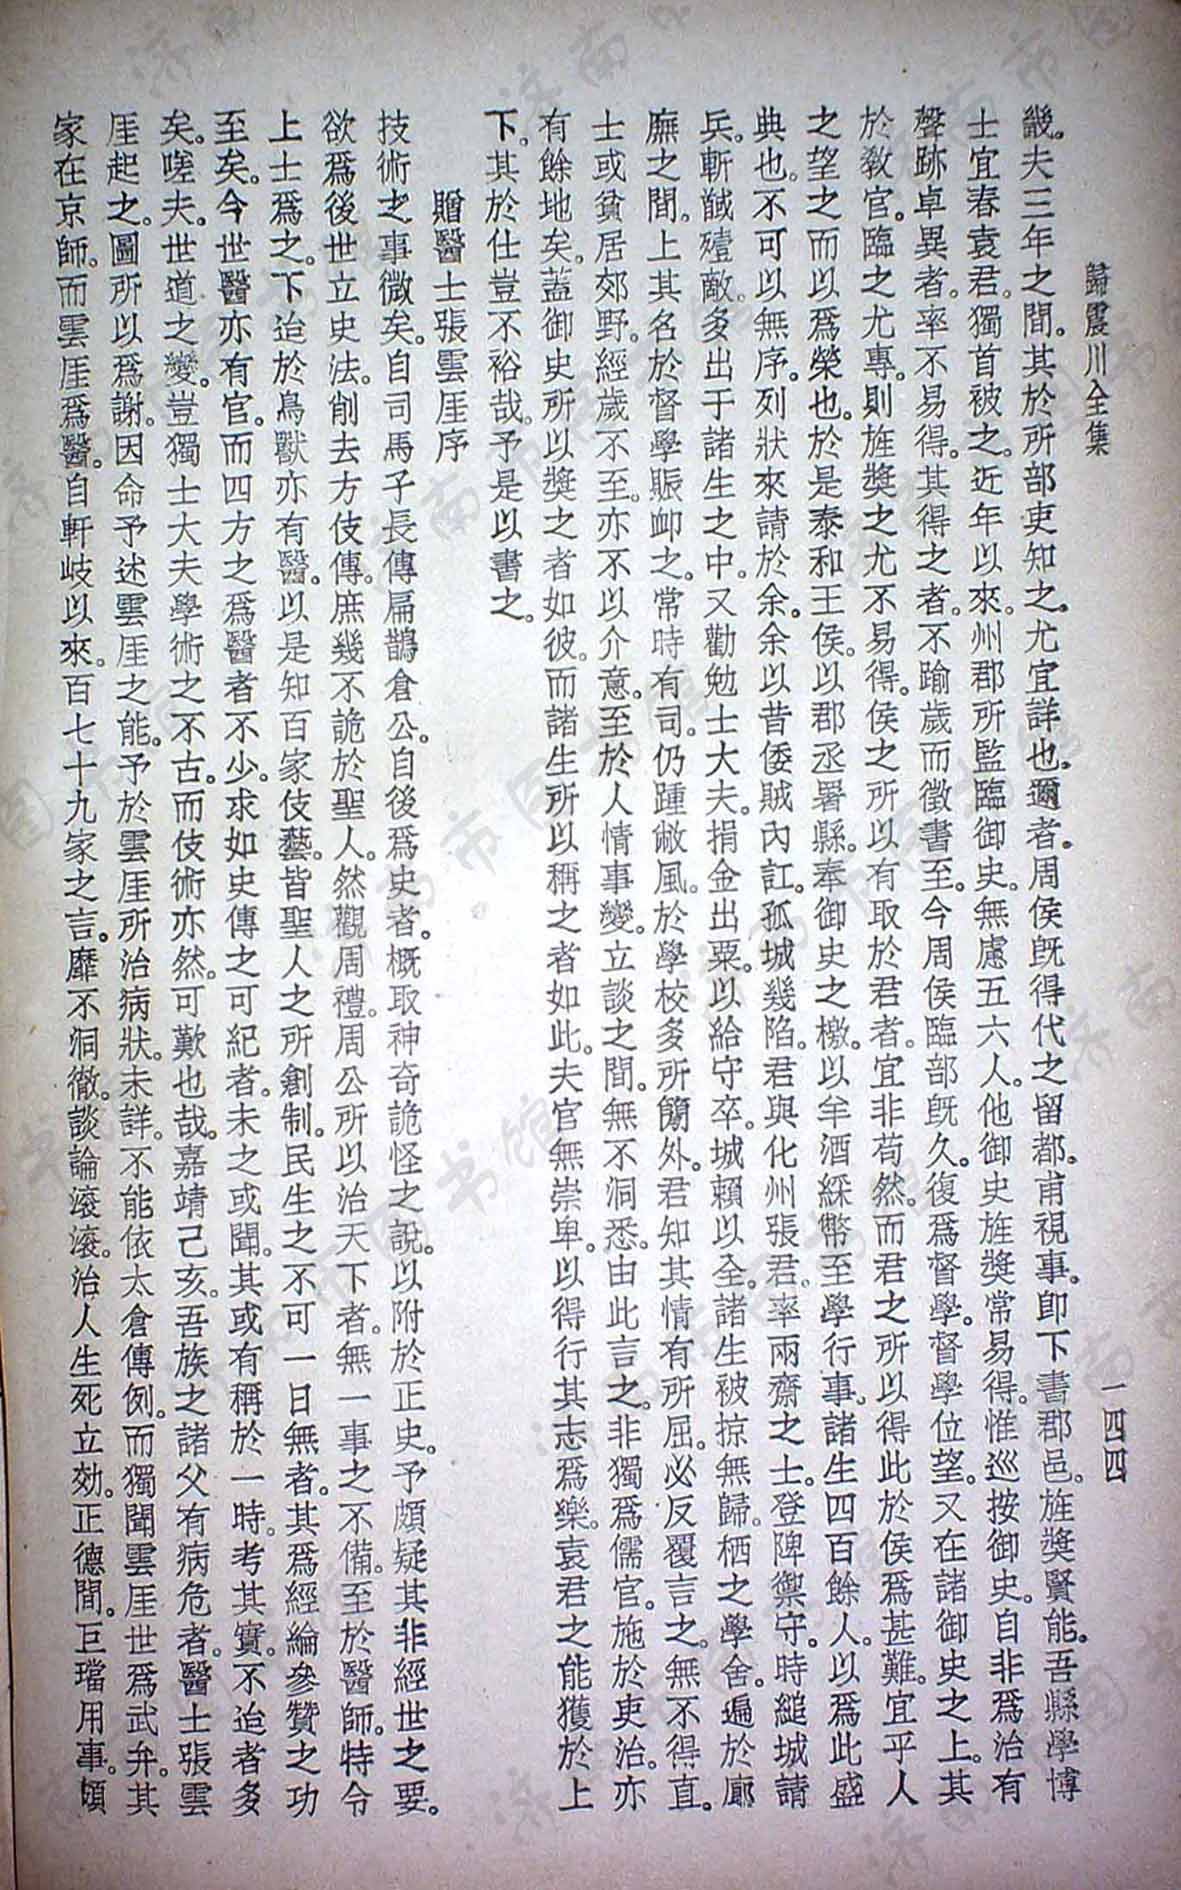 歸震川全集
一四四
畿。夫三年之間。其於所部吏知之。尤宜詳也。邇者。周侯旣得代之留都。甫視事。卽下書郡邑。旌奬賢能。吾縣學博
士宜春袁君。獨首被之。近年以來。州郡所監臨御史。無慮五六人。他御史旌奬常易得。惟巡按御史。自非爲治有
聲跡卓異者。率不易得。其得之者。不踰歲而徵書至。今周侯臨部旣久。復爲督學。督學位望。又在諸御史之上。其
於敎官。臨之尤專。則旌奬之尤不易得。侯之所以有取於君者。宜非苟然。而君之所以得此於侯爲甚難。宜乎人
之望之而以爲榮也。於是泰和王侯。以郡丞署縣。奉御史之檄。以牟酒綵幣至學行事。諸生四百餘人。以爲此盛
典也。不可以無序。列狀來請於余。余以昔倭賊內訌。孤城幾陷。君與化州張君。率兩齋之士。登陴禦守。時縋城請
兵。斬馘殪敵。多出于諸生之中。又勸勉士大夫。捐金出粟。以給守卒。城賴以全。諸生被掠無歸。栖之學舍。遍於廊
廡之間。上其名於督學賑卹之。常時有司。仍踵敝風。於學校多所簡外。君知其情有所屈。必反覆言之。無不得直。
士或貧居郊野。經歲不至。亦不以介意。至於人情事變。立談之間。無不洞悉。由此言之。非獨爲儒官。施於吏治。亦
有餘地矣。蓋御史所以奬之者如彼。而諸生所以稱之者如此。夫官無崇卑。以得行其志爲樂。袁君之能獲於上
下。其於仕豈不裕哉。予是以書之。
贈醫士張雲厓序
技術之事微矣。自司馬子長傳扁鵲倉公。自後爲史者。槪取神奇詭怪之說。以附於正史。予頗疑其非經世之要。
欲爲後世立史法。削去方伎傳。庶幾不詭於聖人。然觀周禮。周公所以治天下者。無一事之不備。至於醫師。特令
上士爲之。下迨於鳥獸亦有醫。以是知百家伎藝。皆聖人之所創制。民生之不可一日無者。其爲經綸參贊之功
至矣。今世醫亦有官。而四方之爲醫者不少。求如史傳之可紀者。未之或聞。其或有稱於一時。考其實。不迨者多
矣。嗟夫。世道之變。豈獨士大夫學術之不古。而伎術亦然。可歎也哉。嘉靖己亥。吾族之諸父有病危者。醫士張雲
厓起之。圖所以爲謝。因命予述雲厓之能。予於雲厓所治病狀。未詳。不能依太倉傳例。而獨聞雲厓世爲武弁。其
家在京師。而雲厓爲醫。自軒岐以來。百七十九家之言。靡不洞徹。談論滚滚。治人生死立効。正德間。巨璫用事。頗